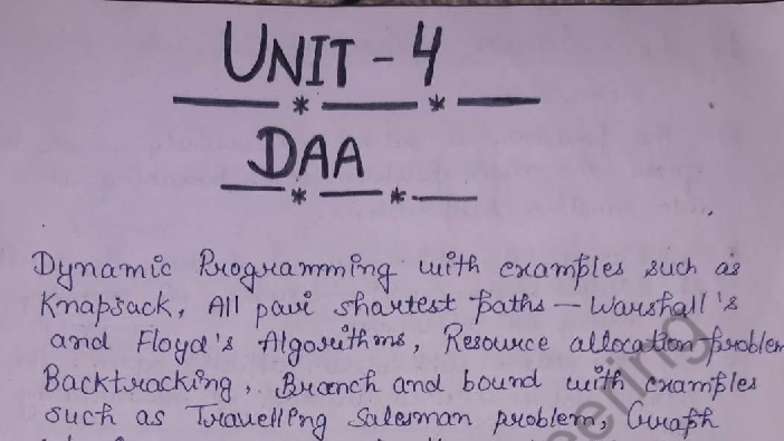 UNIT - 4
DAA
Dynamic Programming with examples such as
Knapsack, All pair shortest paths — Warshall's
and Floyd's Algorithms, Resource allocation problem
Backtracking, Branch and bound with examples
such as Travelling Salesman problem, Graph
eering